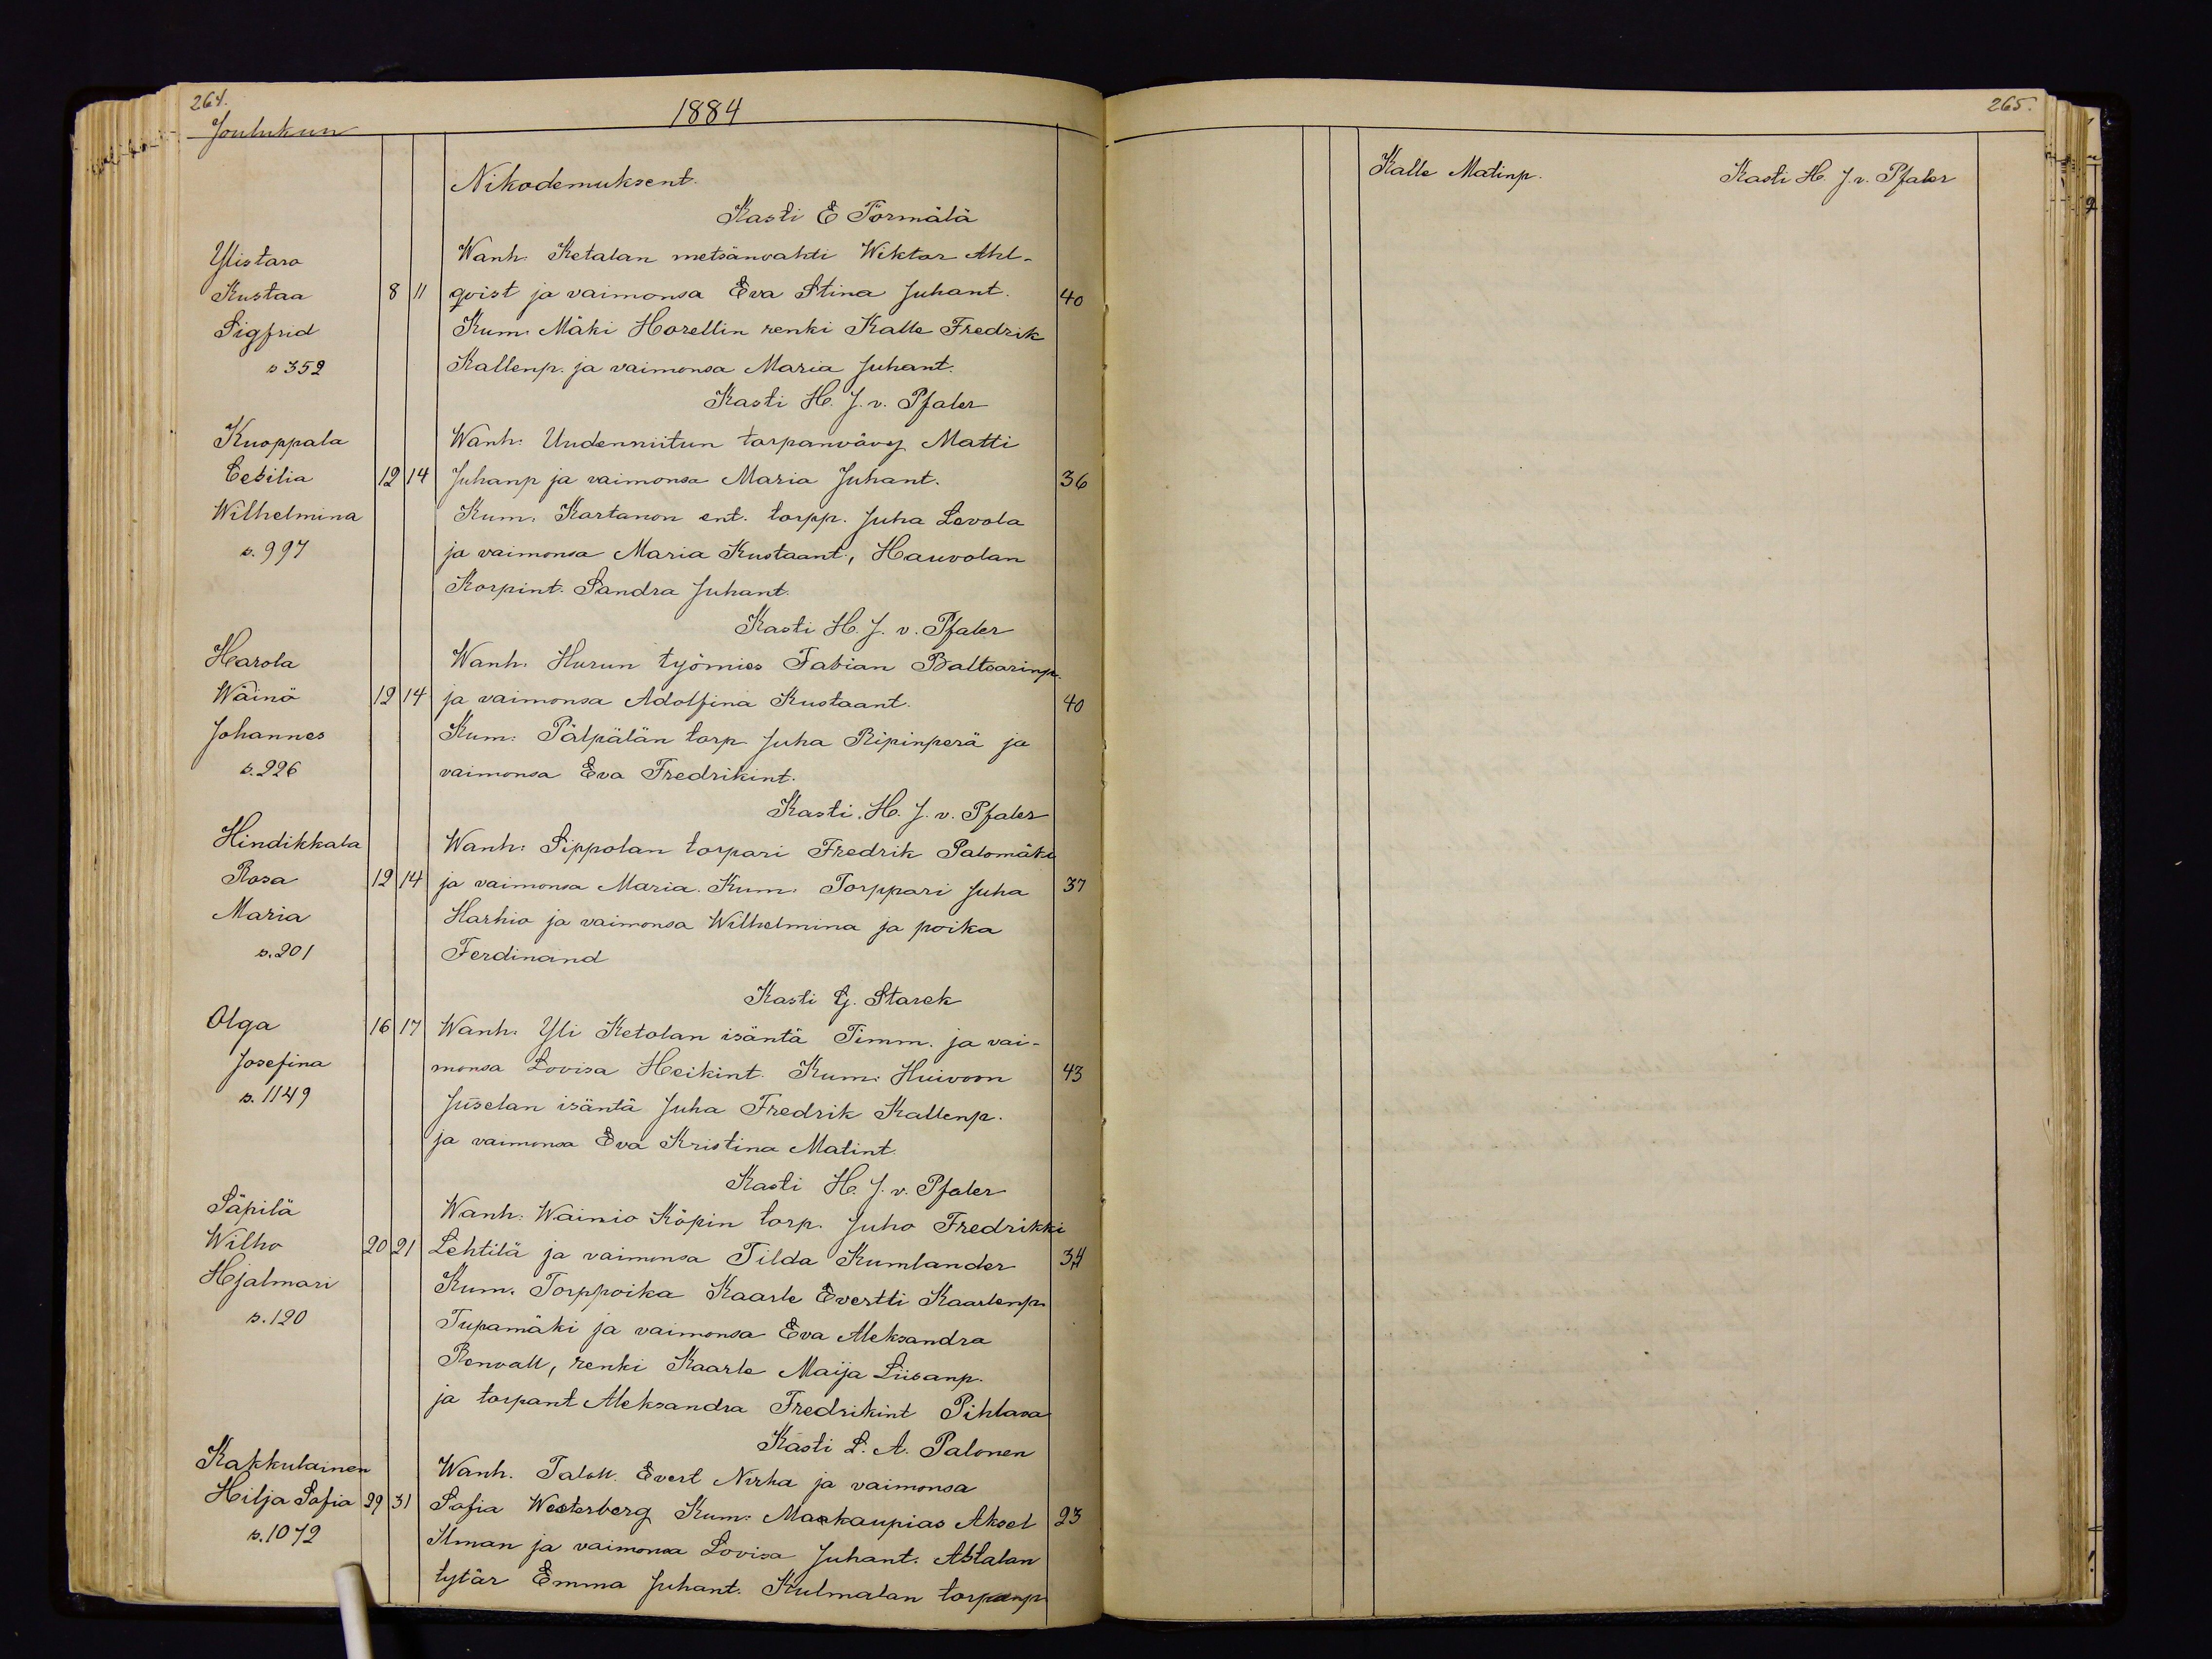 264.
1884
Joulukun
Nikodemuksent.
Kasti E Törmälä
Ylistaro
Wanh. Ketalan metsänvahti Wiktor Ahl-
Kustaa 8 11 qvist ja vaimonsa Eva Stina Juhant. 40
Sigfrid Kum. Mäki Horellin renki Kalle Fredrik
s 352 Kallenp. ja vaimonsa Maria Juhant.
Kasti H. J. v. Pfaler
Kuoppala Wanh. Uudenniitun torpanvävy Matti
Cesilia 12 14 Juhanp ja vaimonsa Maria Juhant. 36
Wilhelmina Kum. Kartanon ent. torpp. Juha Lovola
s. 997 ja vaimonsa Maria Kustaant., Hauvolan
Korpint. Sandra Juhant.
Kasti H. J. v. Pfaler
Harola Wanh. Hurun työmies Fabian Baltsarinp.
Wäinö 12 14 ja vaimonsa Adolfina Kustaant. 40
Johannes Kum. Pälpälän torp Juha Ripinperä ja
s. 226 vaimonsa Eva Fredrikint.
Kasti. H. J. v. Pfaler
Hindikkala Wanh: Sippolan torpari Fredrik Palomäki
Rosa 12 14 ja vaimonsa Maria. Kum. Torppari Juha 37
Maria Harhio ja vaimonsa Wilhelmina ja poika
s. 201 Ferdinand
Kasti G. Starck
Olga 16 17 Wanh. Yli Ketolan isäntä Timm. ja vai-
Josefina monsa Lovisa Heikint. Kum. Huivoon 43
s. 1149 Juselan isäntä Juha Fredrik Kallenp.
ja vaimonsa Eva Kristina Matint.
Kasti H. J. v. Pfaler
Säpilä Wanh. Wainio Köpin torp. Juho Fredrikki
Wilho 20 21 Lehtilä ja vaimonsa Tilda Kumlander 34
Hjalmari Kum. Torppoika Kaarle Evertti Kaarlenp.
s. 120 Tupamäki ja vaimonsa Eva Aleksandra
Renvall, renki Kaarle Maija Liisanp.
ja torpant Aleksandra Fredrikint Pihlava
Kasti L. A. Palonen
Kakkulainen Wanh. Taloll. Evert Nirha ja vaimonsa
Hilja Sofia 29 31 Sofia Westerberg Kum. Maakaupias Aksel 23
s. 1072 Ilman ja vaimonsa Lovisa Juhant. Ahtalan
tytär Emma Juhant. Kulmalan torpanp.
265.
Kalle Matinp. Kasti H. J. v. Pfaler